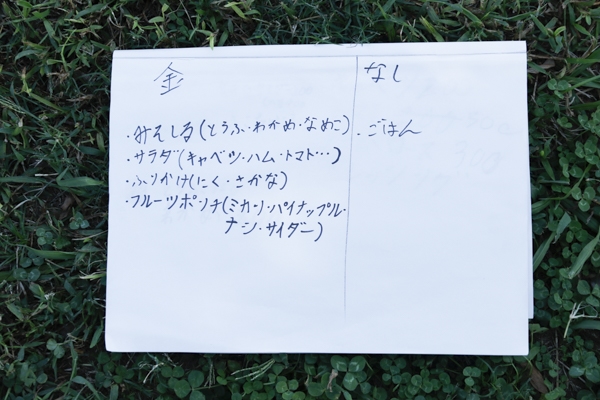 金
なし
・みそしる(とうふ・わかめ・なめこ)
・ごはん
・サラダ(キャベツ・ハム・トマト…)
・ふりかけ(にく・さかな)
・フルーツポンチ(ミカン・パイナップル・
ナシ・サイダー)